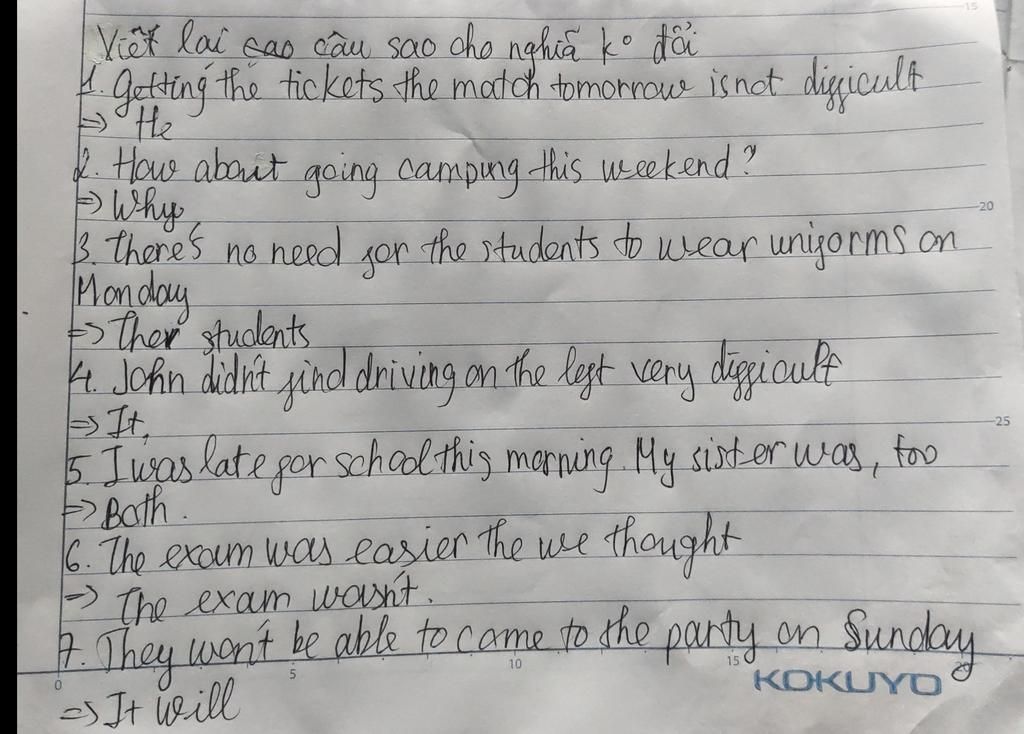 15
Viết lại các câu sao cho nghĩa ko đổi
1. Getting the tickets the match tomorrow is not difficult
=> He
2. How about going camping this weekend?
=> Why
20
3. There's no need for the students to wear uniforms on
Monday
=> Ther students
4. John didn't find driving on the left very difficult
=> It,
25
5. I was late for school this morning. My sister was, too
=> Both.
6. The exam was easier the we thought
=> The exam wasn't.
7. They won't be able to come to the party on Sunday
0 5 10 15 KOKUYO
=> It will